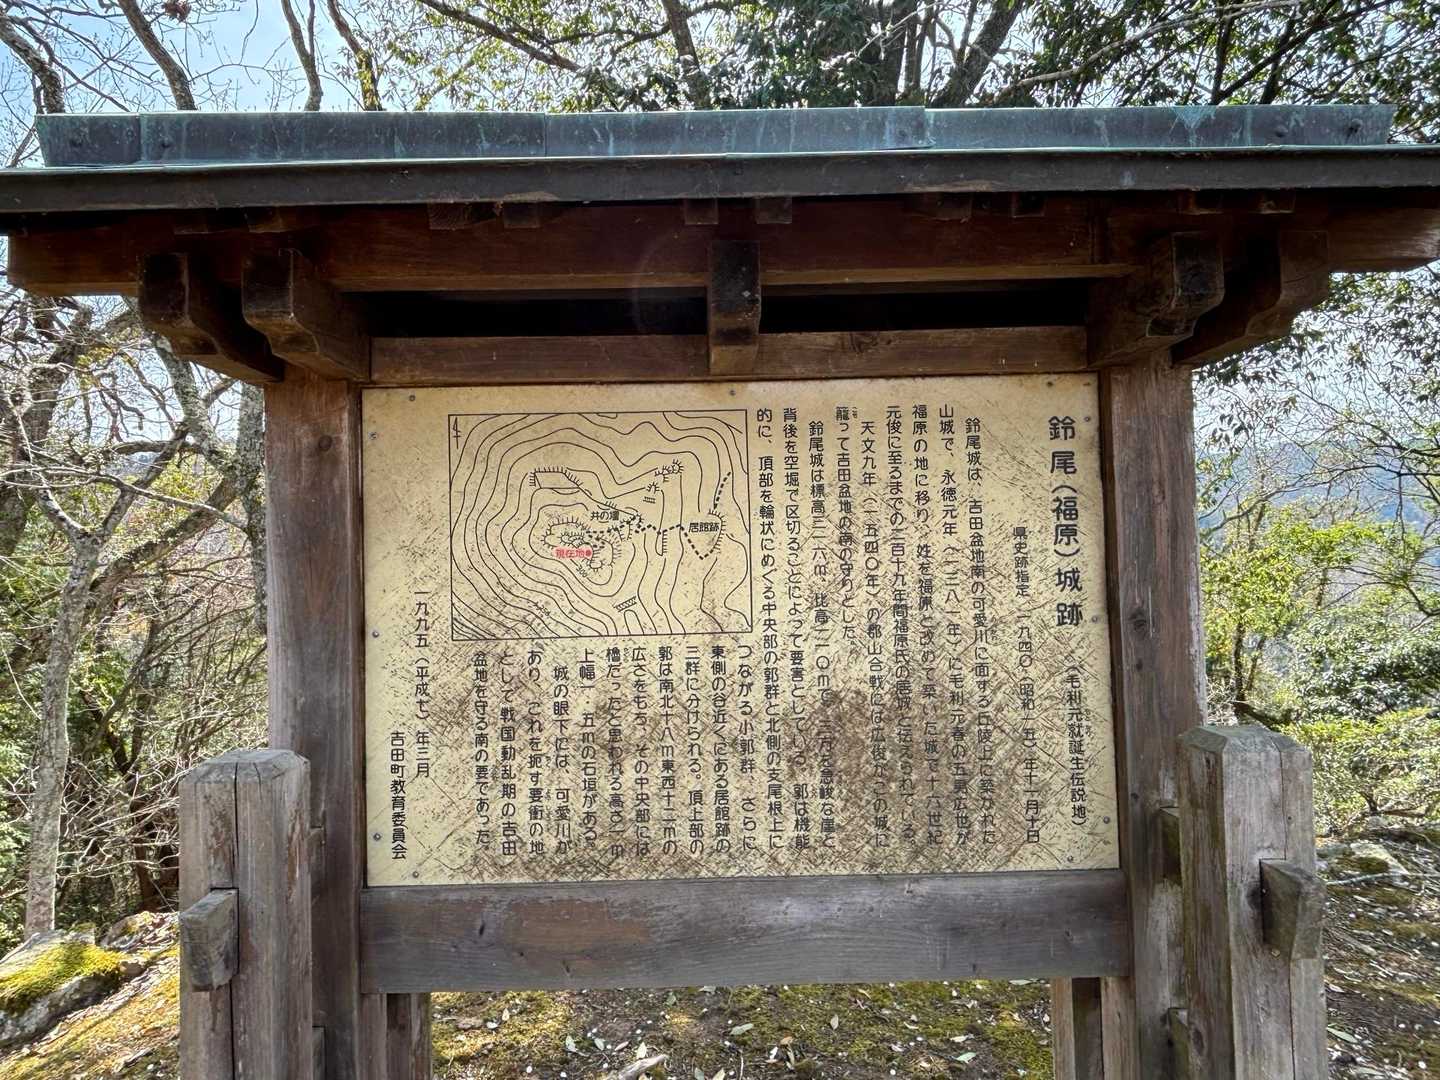 鈴尾(福原)城跡 (毛利元就誕生伝説地)
県史跡指定 一九四〇(昭和一五)年十一月十日
鈴尾城は、吉田盆地南の可愛川に面する丘陵上に築かれた
山城で、永徳元年(一三八一年)に毛利元春の五男広世が
福原の地に移り、姓を福原と改めて築いた城で十六世紀
元俊に至るまでの二百十九年間福原氏の居城と伝えられている。
天文九年(一五四〇年)の郡山合戦には広俊がこの城に
籠って吉田盆地の南の守りとした。
鈴尾城は標高三一六m、比高一一〇mで、三方を急峻な崖と
背後を空堀で区切ることによって要害としている。郭は機能
的に、頂部を輪状にめぐる中央部の郭群と北側の支尾根上に
つながる小郭群、さらに
東側の谷近くにある居館跡の
三群に分けられる。頂上部の
郭は南北十八m東西十二mの
広さをもち、その中央部には
櫓だったと思われる高さ一m
上幅一・五mの石垣がある。
城の眼下には、可愛川が
あり、これを扼す要衝の地
として戦国動乱期の吉田
盆地を守る南の要であった。
一九九五(平成七)年三月
吉田町教育委員会
井の壇
居館跡
現在地